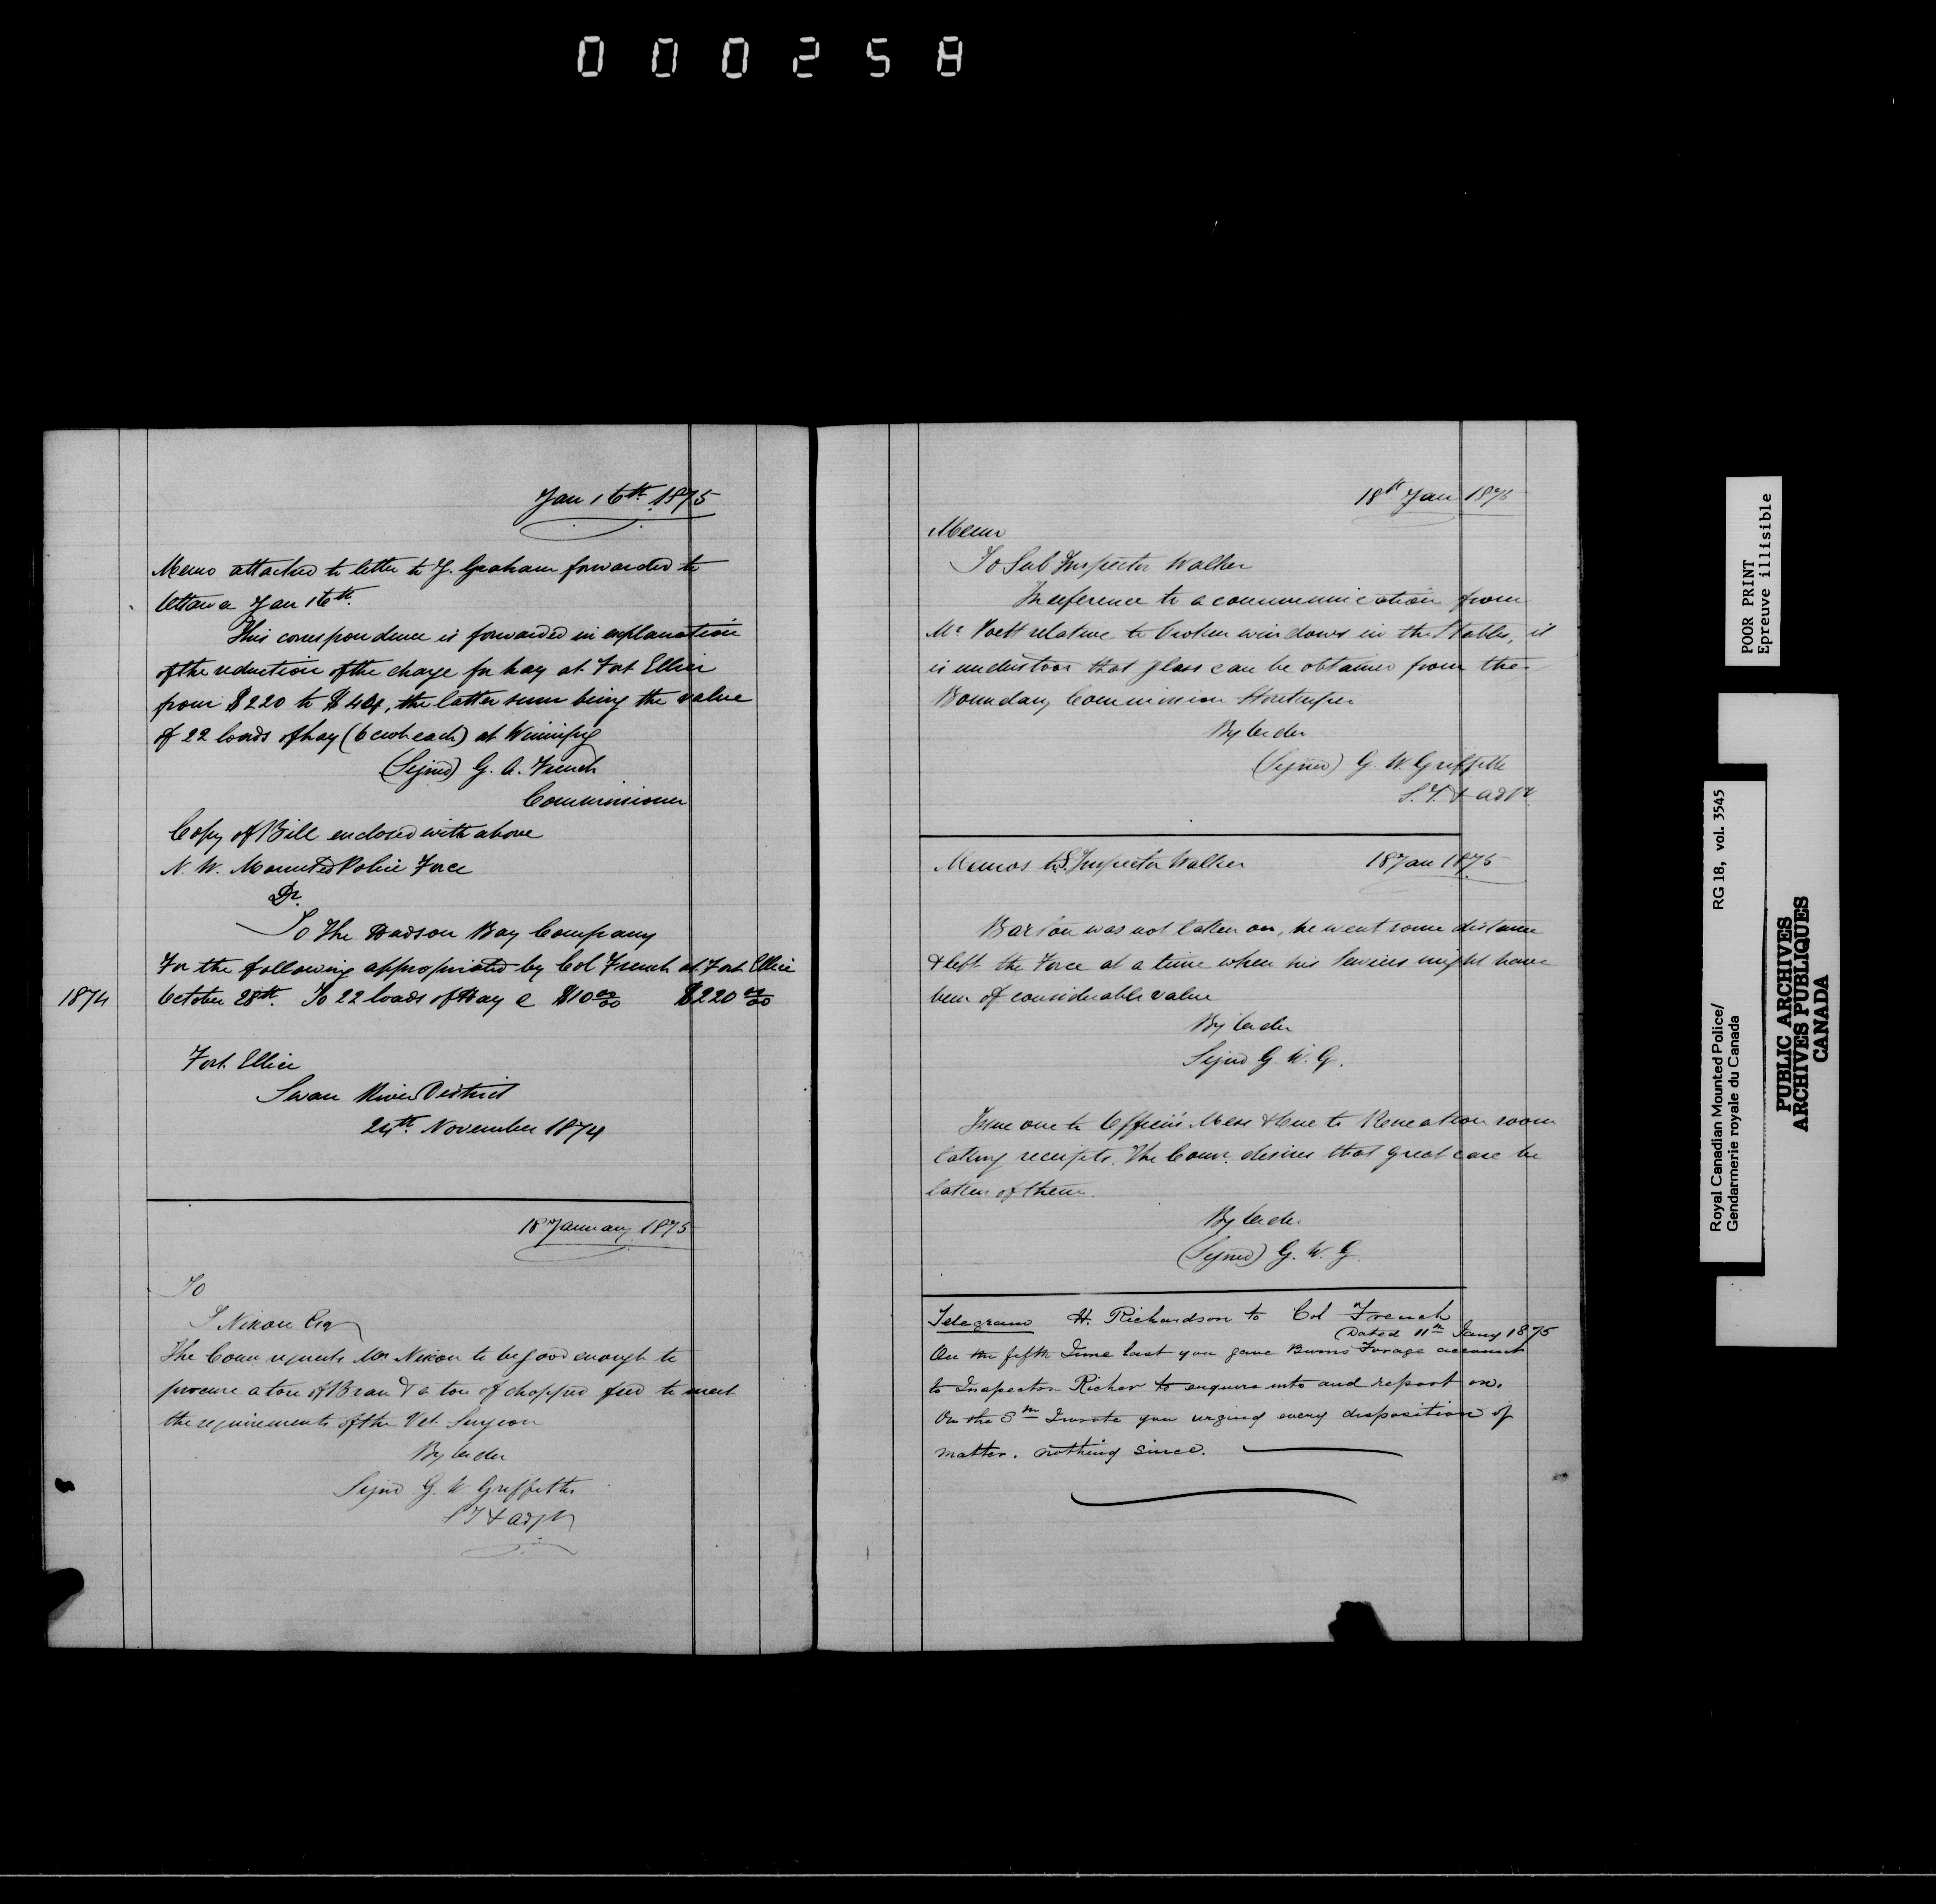 000258
Jan 16th 1875
Memo attached to letter to J. Graham forwarded to
Ottawa Jan 16th
This correspondence is forwarded in explanation
of the reduction of the charge for hay at Fort Ellice
from $220 to $44, the latter sum being the value
of 22 loads of hay (6 cwt each) at Winnipeg
(Signed) G. A. French
Commissioner
Copy of Bill enclosed with above
N. W. Mounted Police Force
Dr.
To The Hudson Bay Company
For the following appropriated by Col French at Fort Ellice
1874 October 28th. To 22 loads of Hay @ $10 00/00 $220 00/00
Fort Ellice
Swan River District
24th November 1874
18 January 1875
To
S Nixon Esq
The Comr requests Mr Nixon to be good enough to
procure a ton of Bran & a ton of chopped feed to meet
the requirements of the Vet. Surgeon
By Order
Signd G. W Griffiths
S I & Adjt
18th Jan 1875
Memo
To Sub Inspector Walker
In reference to a communication from
Mr Poett relative to broken windows in the Stables, it
is understood that glass can be obtained from the
Boundary Commission Storekeeper
By Order
(Signed) G. W. Griffiths
S. I. & Adjt
Memos to S. Inspector Walker 18 Jan 1875
Barton was not taken on, he went some distance
& left the Force at a time when his Services might have
been of considerable value
By Order
Signd G. W. G.
Issue one to Officers' Mess & One to Recreation room
taking receipts. The Comr. desires that great care be
taken of them.
By Order
(Signed) G. W. G
Telegram H. Richardson to Col French
(Dated 11th Jany 1875
On the fifth June last you gave Burns' Forage account
to Inspector Richer to enquire into and report on.
On the 8th I wrote you urging every disposition of
matter. nothing since.
POOR PRINT
Epreuve illisible
Royal Canadian Mounted Police/ RG 18, vol. 3545
Gendarmerie royale du Canada
PUBLIC ARCHIVES
ARCHIVES PUBLIQUES
CANADA